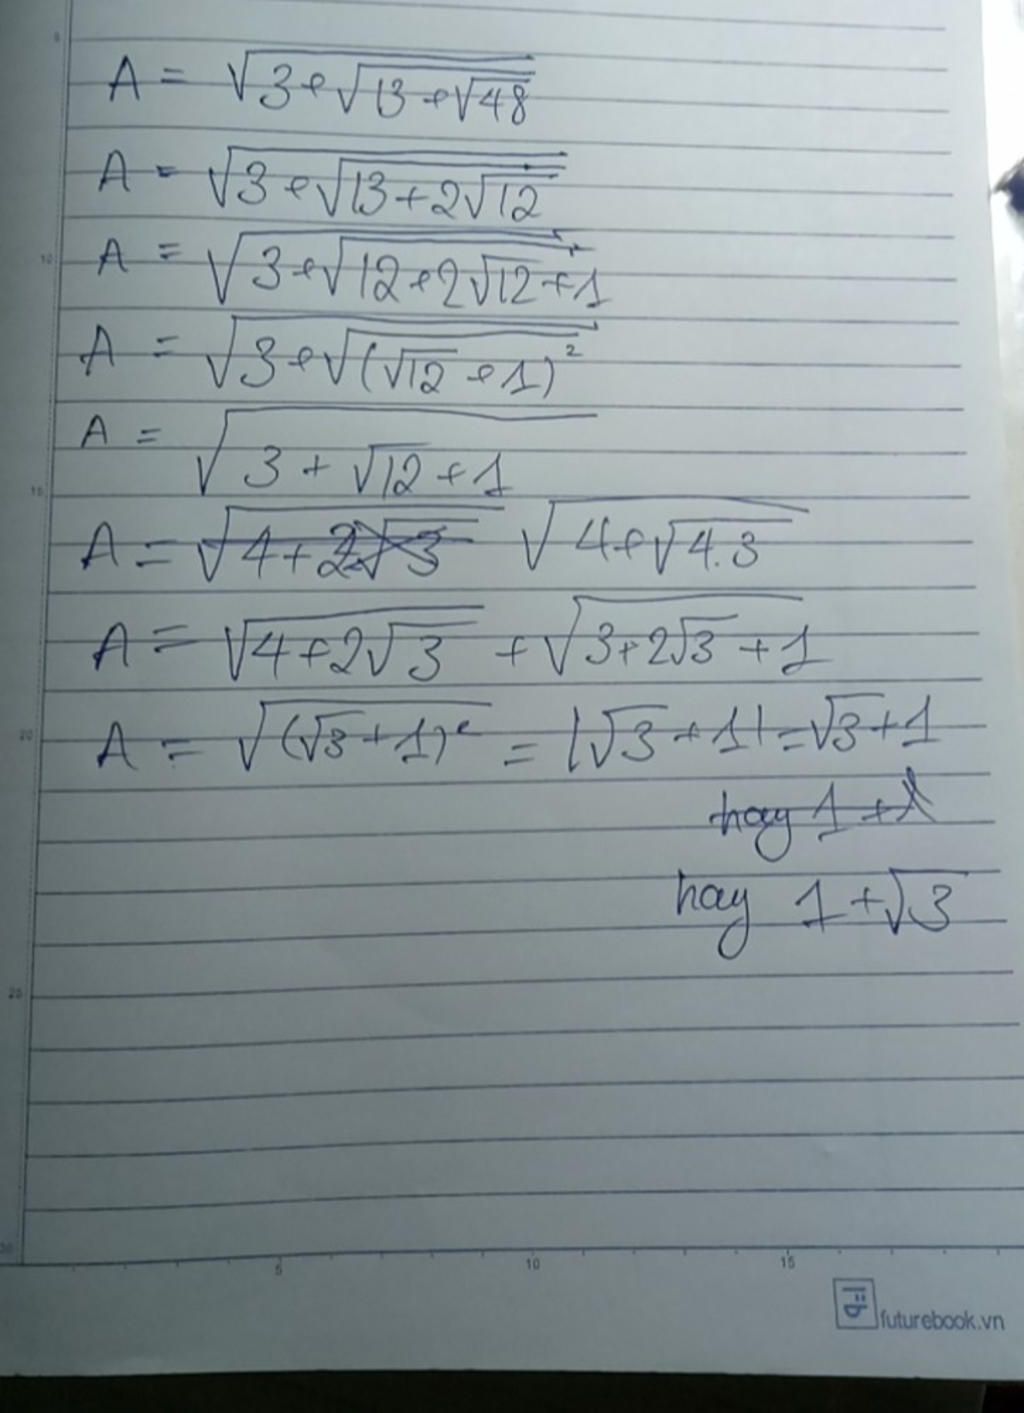 A = √(3+√(13+√48))
A = √(3+√(13+2√12))
A = √(3+√(12+2√12+1))
A = √(3+√((√12+1)²))
A = √(3+√12+1)
A = √(4+2√3) √(4+√(4.3))
A = √(4+2√3) + √(3+2√3+1)
A = √((√3+1)²) = |√3+1| = √3+1
hay 1+
hay 1+√3
5
10
15
20
25
30
5
10
15
futurebook.vn